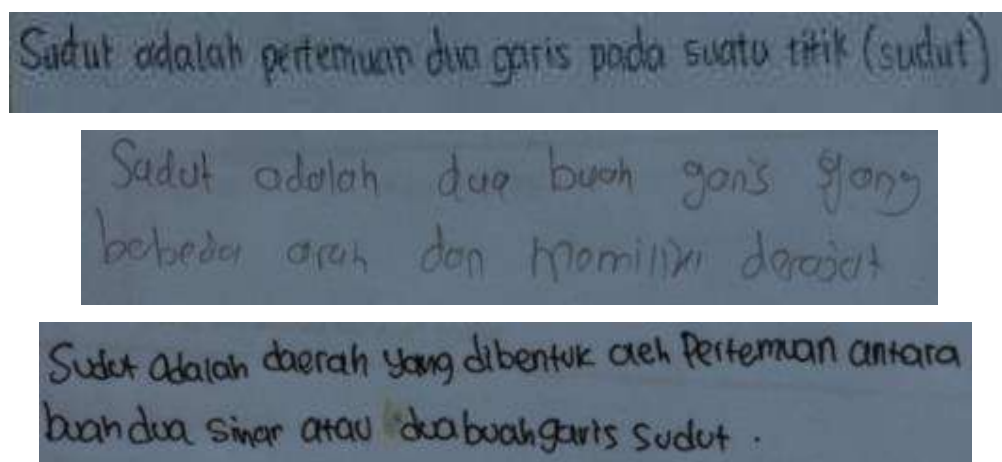 Sudut adalah pertemuan dua garis pada suatu titik (sudut)
Sudut adalah dua buah garis yang
bebeda arah dan memiliki derajat
Sudut adalah daerah yang dibentuk oleh Pertemuan antara
buah dua sinar atau dua buah garis sudut .